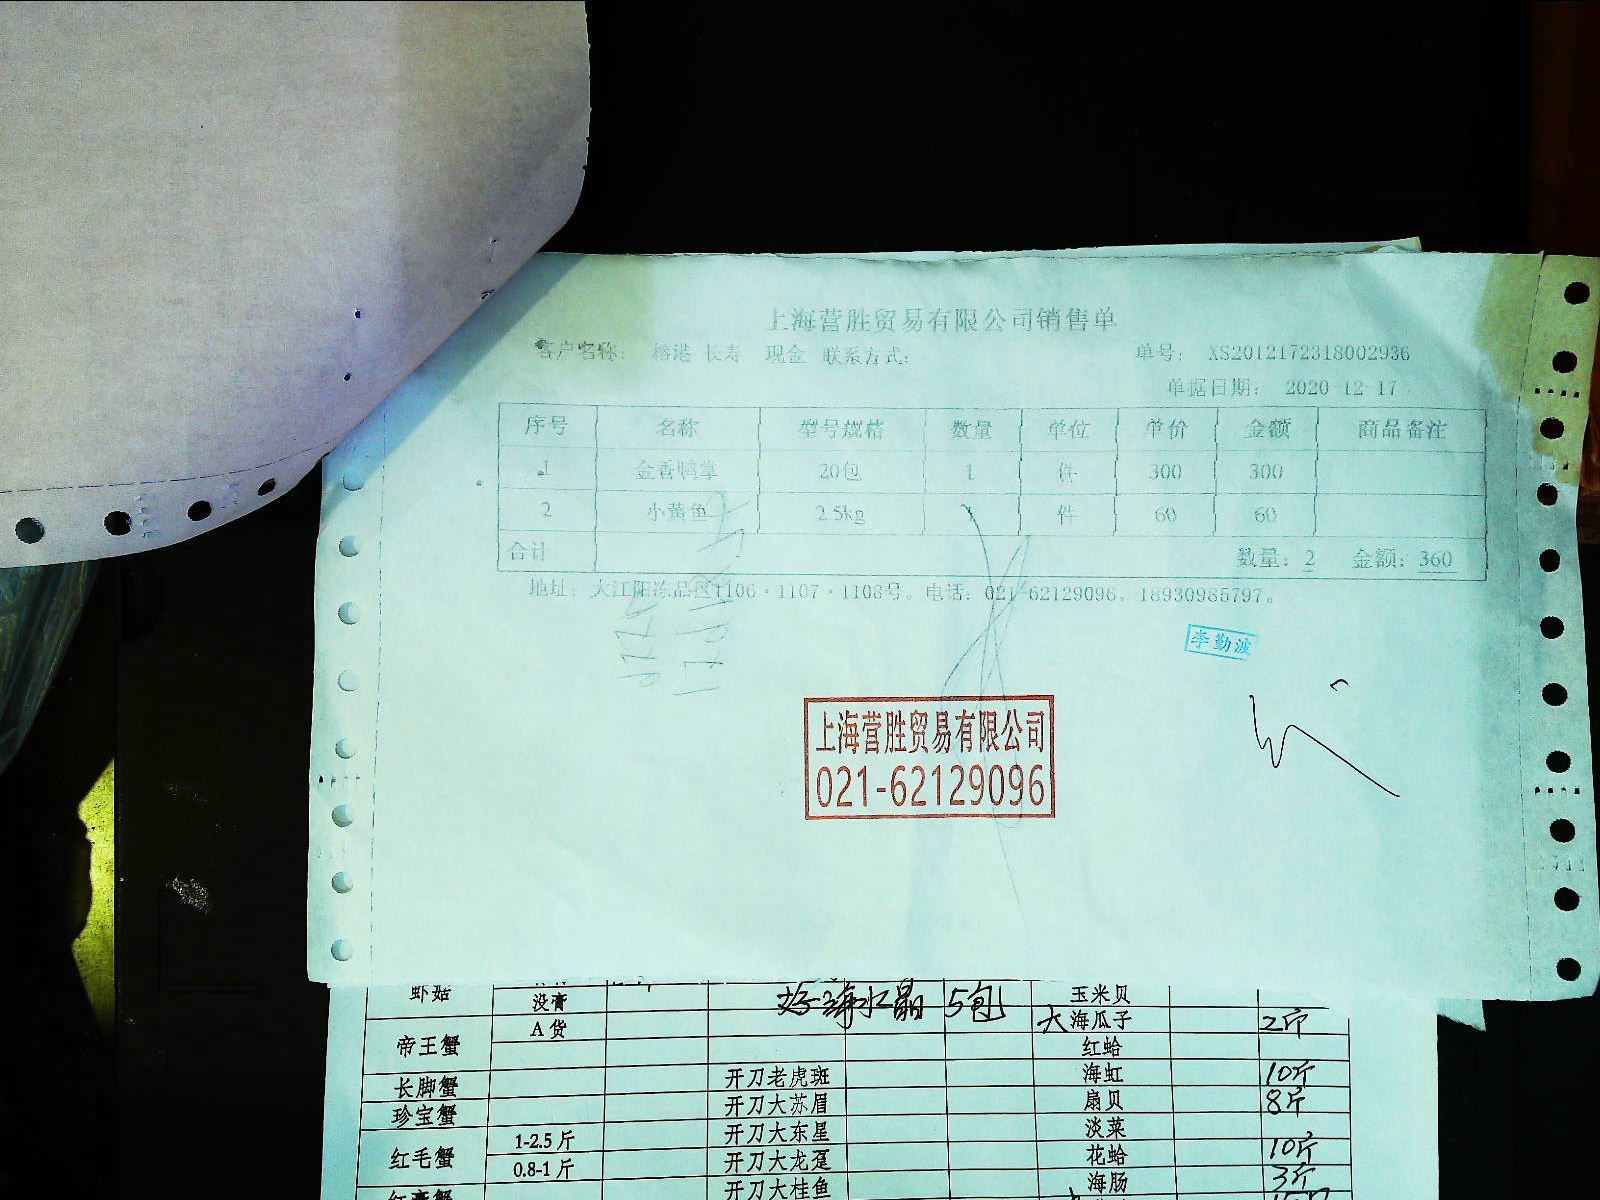 上海营胜贸易有限公司销售单
客户名称： 榕港 长寿 现金 联系方式： 单号： XS2012172318002936
单据日期： 2020-12-17
序号 名称 型号规格 数量 单位 单价 金额 商品备注
1 金香鸭掌 20包 1 件 300 300
2 小黄鱼 2.5kg 1 件 60 60
合计 数量：2 金额：360
地址：大江阳冻品区1106·1107·1108号。电话：021-62129096，18930985797。
李勤波
上海营胜贸易有限公司
021-62129096
虾菇 没膏 海水晶 5包 玉米贝
帝王蟹 A 货 大海瓜子 2斤
红蛤
长脚蟹 开刀老虎斑 海虹 10斤
珍宝蟹 开刀大苏眉 扇贝 8斤
红毛蟹 1-2.5 斤 开刀大东星 淡菜
0.8-1 斤 开刀大龙趸 花蛤 10斤
开刀大桂鱼 海肠 3斤